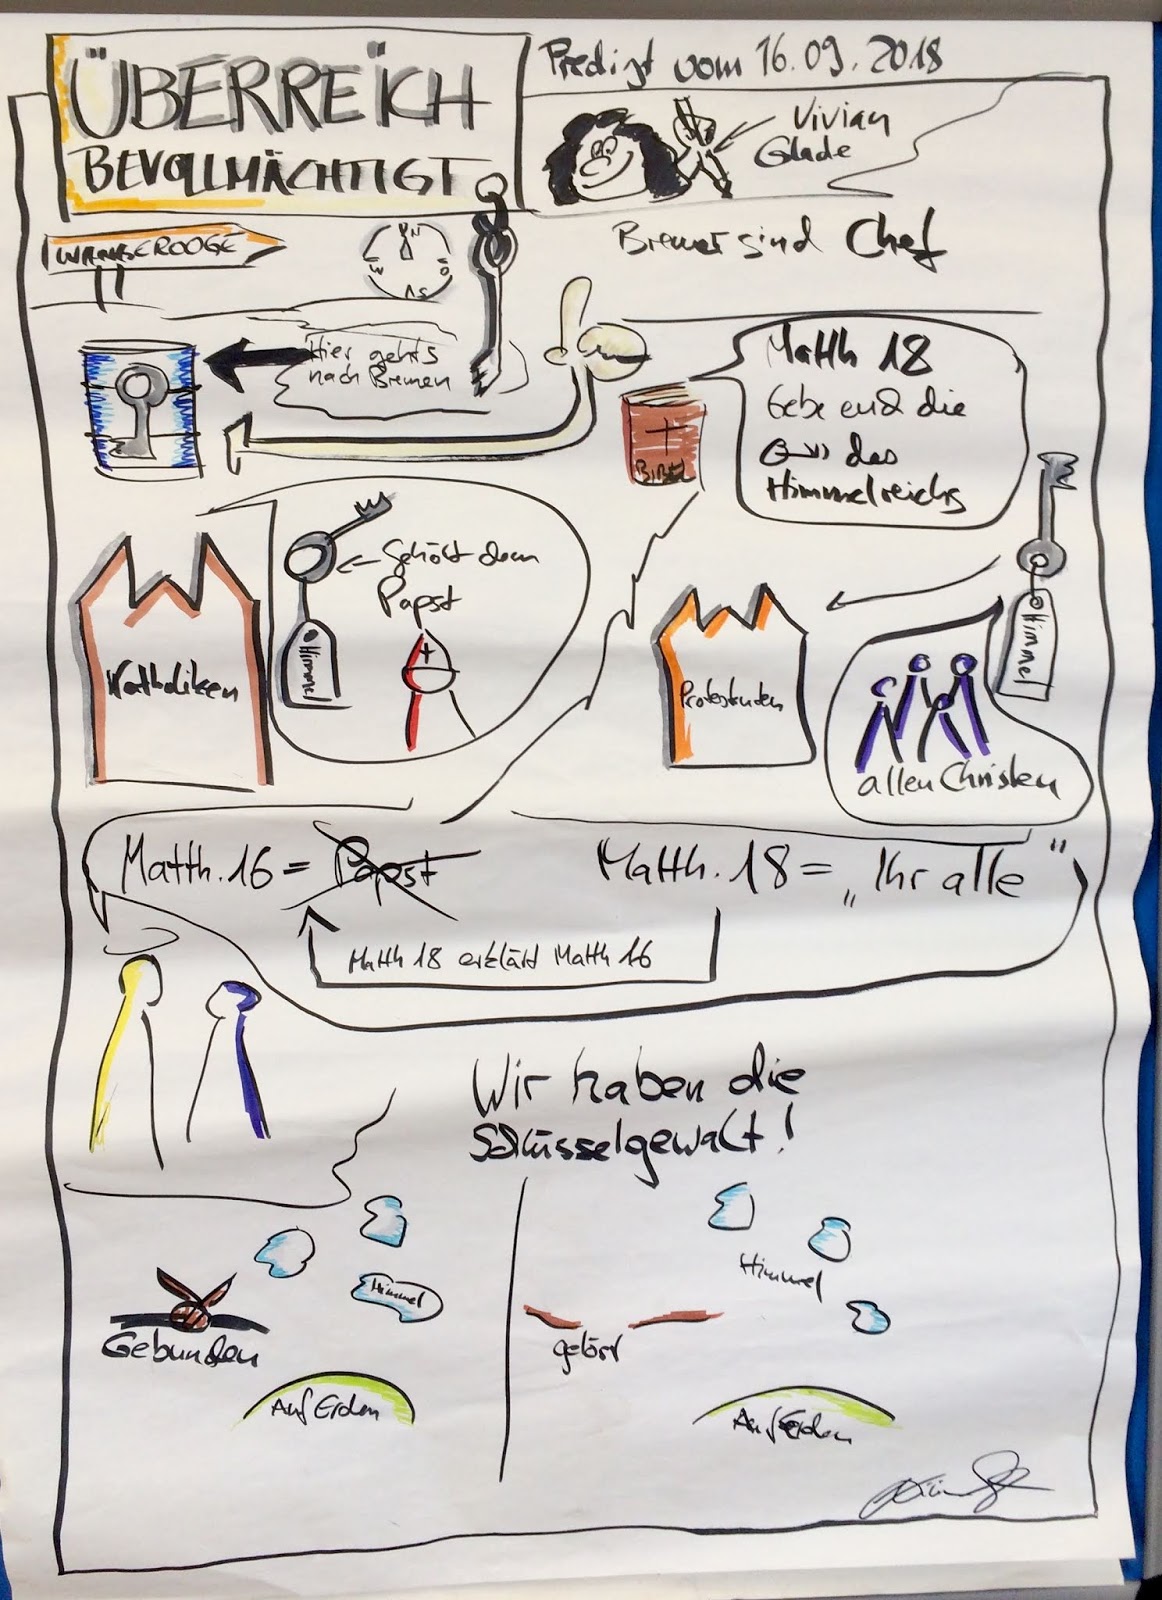 ÜBERREICH
BEVOLLMÄCHTIGT
Predigt vom 16.09.2018
Vivian
Glade
WANGEROOGE
N
W
O
S
Bremer sind Chef
Hier gehts
nach Bremen
BIBEL
Matth 18
Gebe euch die
des
Himmelreichs
Gehört dem
Papst
Himmel
Katholiken
Protestanten
Himmel
allen Christen
Matth. 16 = Papst
Matth. 18 = „Ihr alle"
Matth 18 erklärt Matth 16
Wir haben die
Schlüsselgewalt!
Himmel
Gebunden
Auf Erden
Himmel
gelöst
Auf Erden